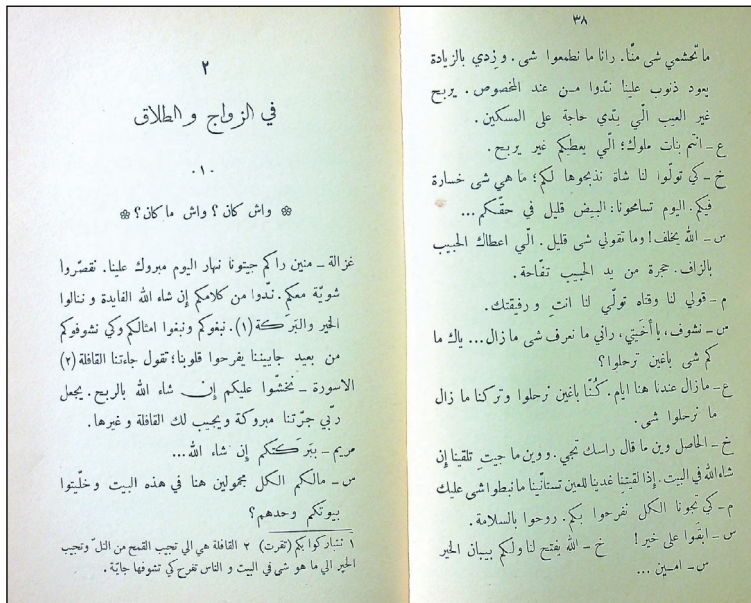 ٣٨
ما تحشمي شى منّا. رانا ما نطمعوا شى. وزدي بالزيادة
يعود ذنوب علينا! ندّوا مـن عند المخصوص. يربح
غير العيب الّي يدّي حاجة على المسكين.
ع – انتم بنات ملوك؛ الّي يعطيكم غير يربح.
خ – كي تولّوا لنا شاة نذبحوها لكم؛ ما هي شى خسارة
فيكم. اليوم تسامحونا: البيض قليل في حقّكم...
س – الله يخلف! وما تقولي شى قليل. الّي اعطاك الحبيب
بالزاف. حجرة من يد الحبيب تفّاحة.
م – قولي لنا وقتاه تولّي لنا انتِ ورفيقتك.
س – نشوف، يا أُخَيتي، راني ما نعرف شى ما زال... ياك ما
كم شى باغين ترحلوا؟
ع – ما زال عندنا هنا ايام. كُنّا باغين نرحلوا وتركنا ما زال
ما نرحلوا شى.
خ – الحاصل وين ما قال راسك تجي. ووين ما جيتِ تلقينا إن
شاء الله في البيت. إذا لقيتنا غدينا للعين تستانّينا ما نبطوا شى عليك
م – كي تجونا الكل نفرحوا بكم. روحوا بالسلامة.
س – ابقَوا على خير! خ – الله يفتح لنا ولكم بيبان الخير
س – امـين ...
٢
في الزواج والطلاق
٠١٠
❁ واش كان؟ واش ما كان؟ ❁
غزالة – منين راكم جيتونا نهار اليوم مبروك علينا. نقصّروا
شويّة معكم. ندّوا من كلامكم إن شاء الله الفايدة وننالوا
الخير والبَرَكة (١). نبغوكم ونبغوا امثالكم وكي نشوفوكم
من بعيد جايـيننا يفرحوا قلوبنا؛ تقول جاءتنا القافلة (٢)
الاسورة – نخشّوا عليكم إن شاء الله بالربح. يجعل
ربّي جرّتنا مبروكة ويجيب لك القافلة وغيرها.
مريم – ببَرَكَتكم إن شاء الله...
س – مالكم الكل مجمولين هنا في هذه البيت وخلّيتوا
بيوتكم وحدهم؟
١ نتباركوا بكم (تقرت) ٢ القافلة هي الي تجيب القمح من التلّ وتجيب
الخير الي ما هو شى في البيت و الناس تفرح كي تشوفها جايّة.